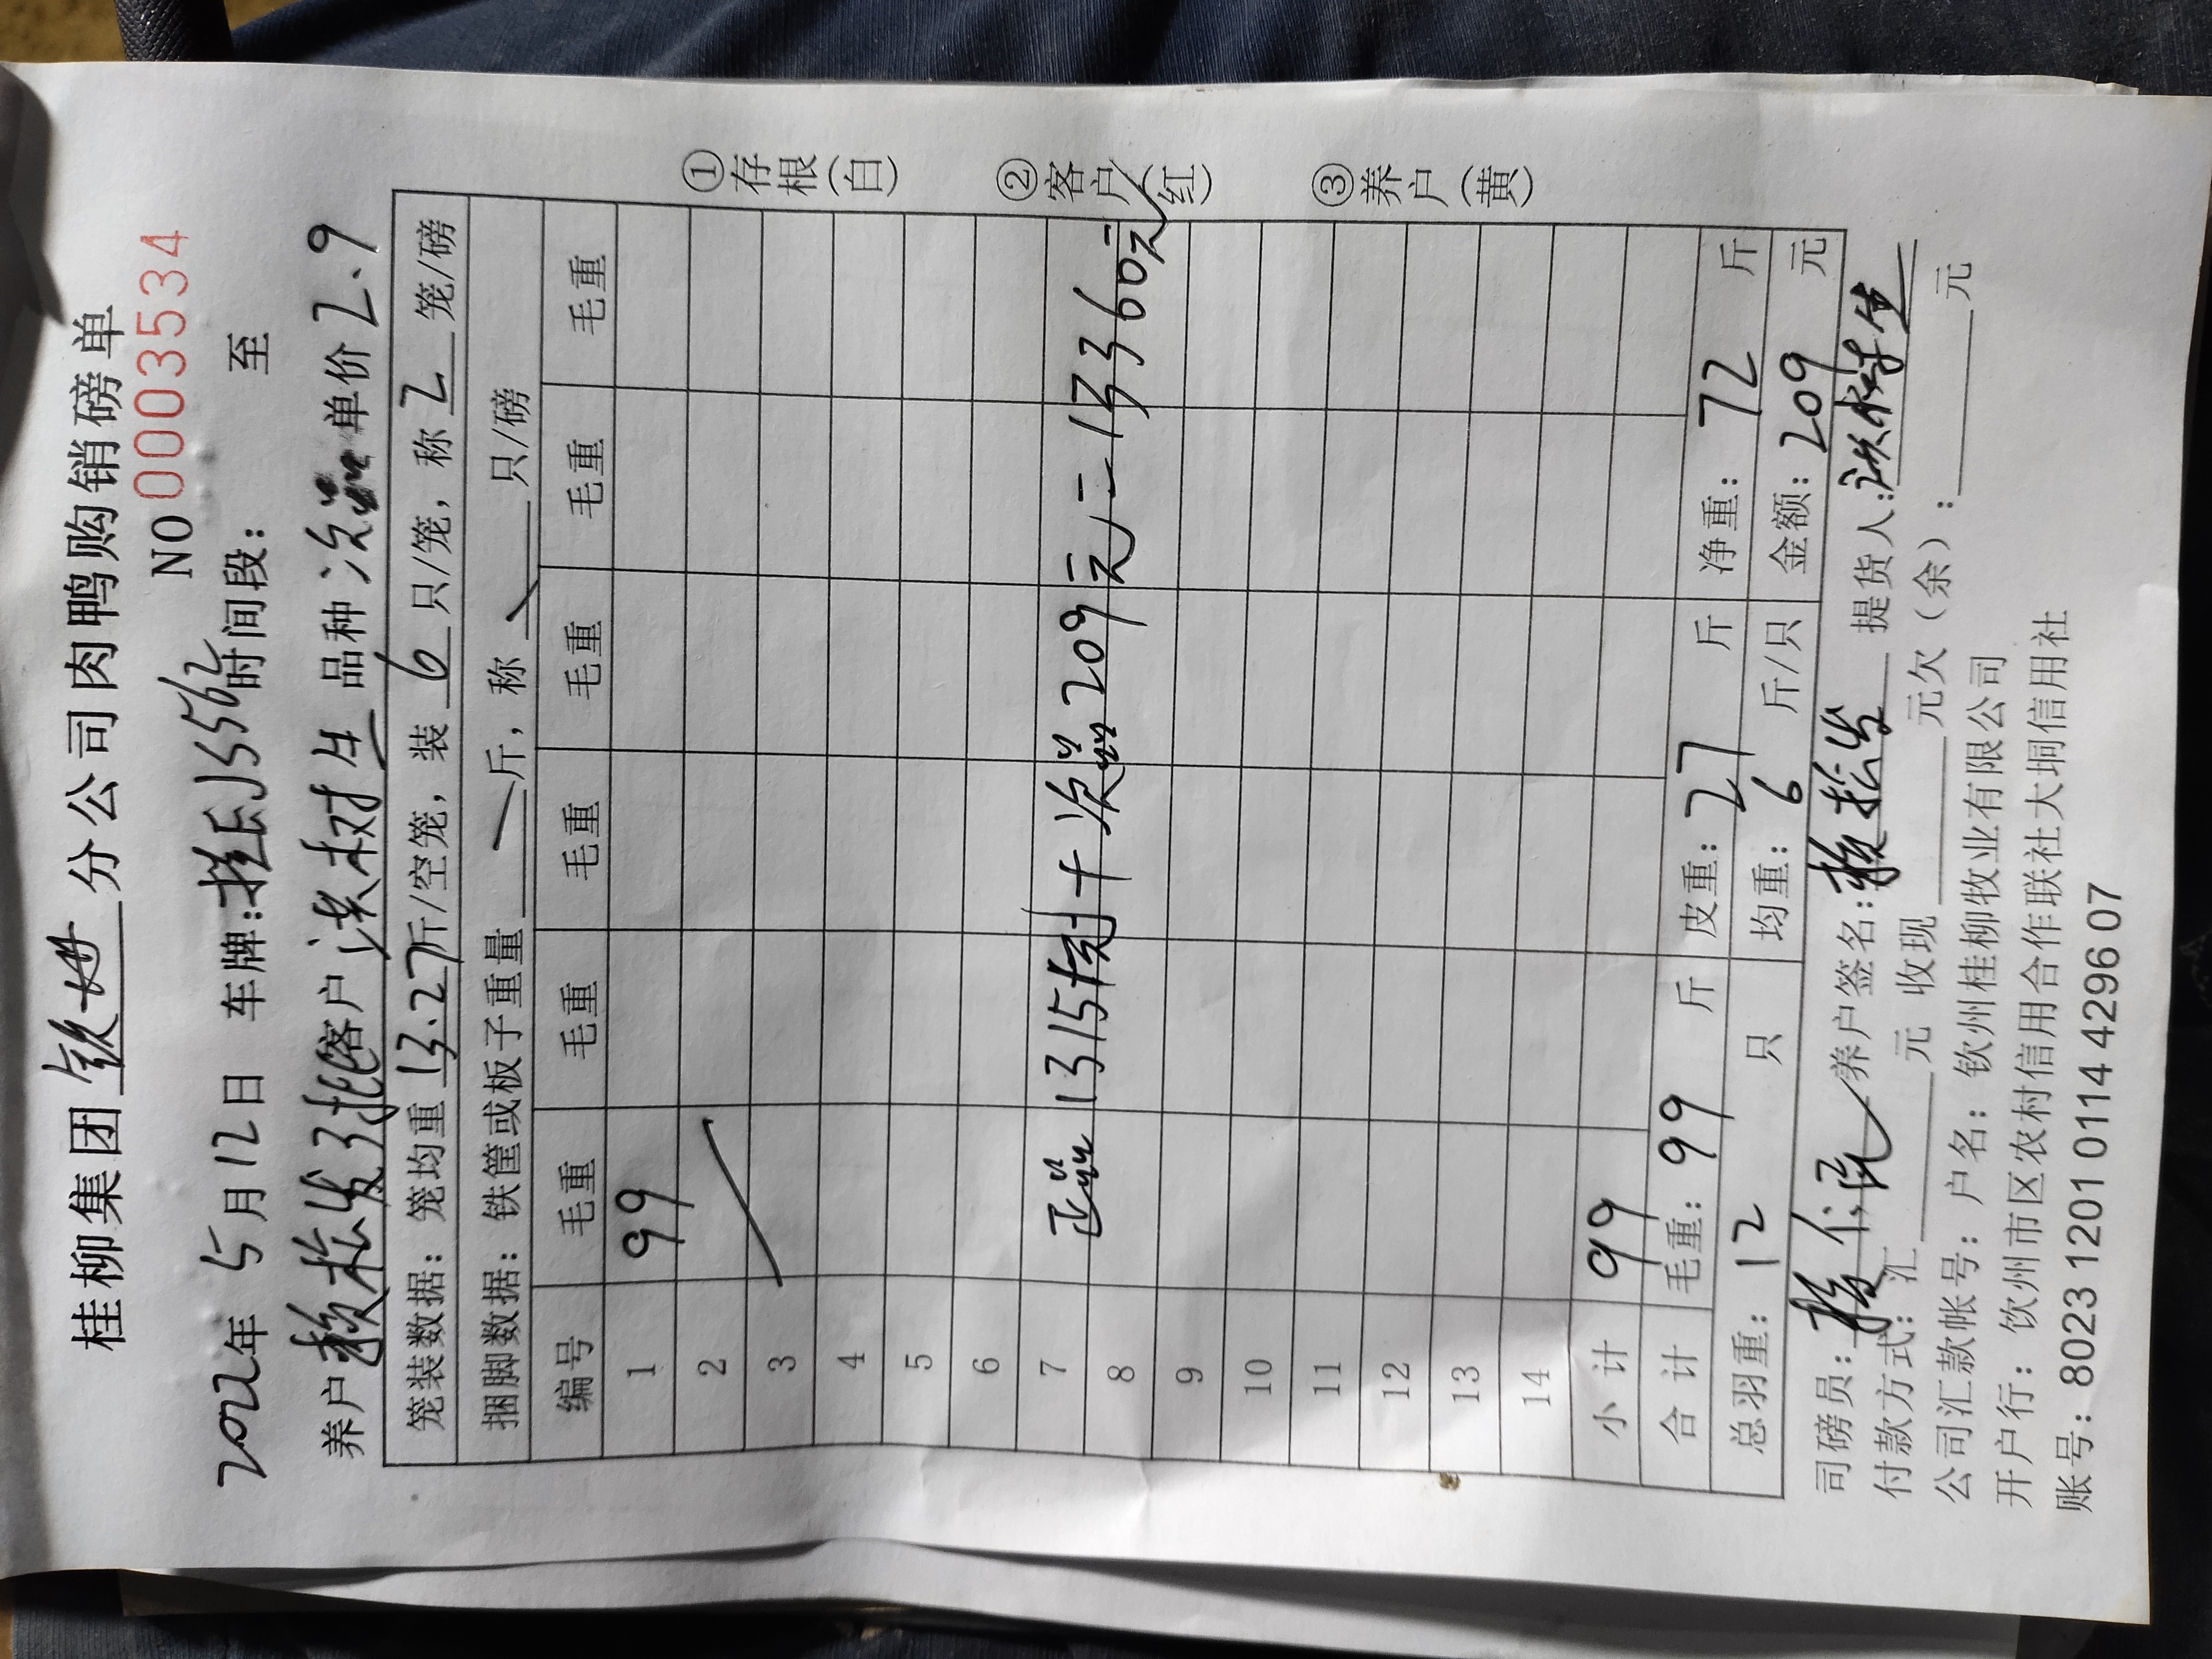 桂柳集团 钦州 分公司肉鸭购销磅单
NO 0003534
2022年 5月12日 车牌: 桂EJ5562 时间段: 至
养户 赖松发3批 客户 洪树生 品种 次品 单价 2.9
笼装数据: 笼均重 13.27斤/空笼, 装 6 只/笼, 称 2 笼/磅
捆脚数据: 铁筐或板子重量 / 斤, 称 / 只/磅
编号 毛重 毛重 毛重 毛重 毛重 毛重
1 99
2
3
4
5
6
7
正品 13151元+次品209元=13360元
8
9
10
11
12
13
14
小计 99
合计 毛重: 99 斤 皮重: 27 斤 净重: 72 斤
总羽重: 12 只 均重: 6 斤/只 金额: 209 元
司磅员: 养户签名: 赖松发 提货人: 洪树生
付款方式: 汇 元 收现 元欠(余): 元
公司汇款帐号: 户名: 钦州桂柳牧业有限公司
开户行: 钦州市区农村信用合作联社大垌信用社
账号: 8023 1201 0114 4296 07
①存根(白)
②客户(红)
③养户(黄)